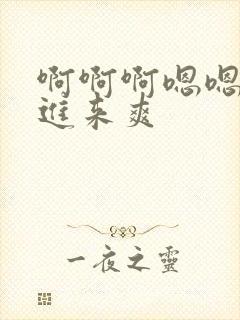 啊啊啊嗯嗯
進来爽
一夜之靈